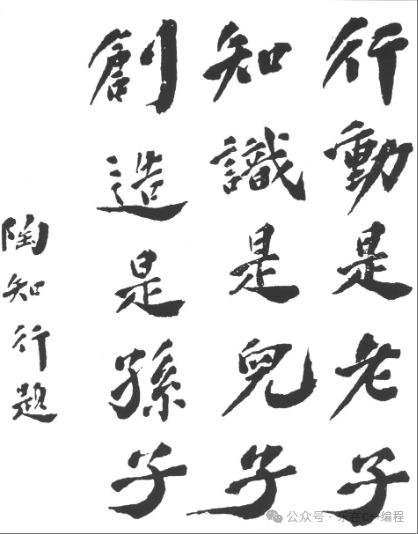 行動是老子
知識是兒子
創造是孫子
陶知行題
公众号·乐在C++编程